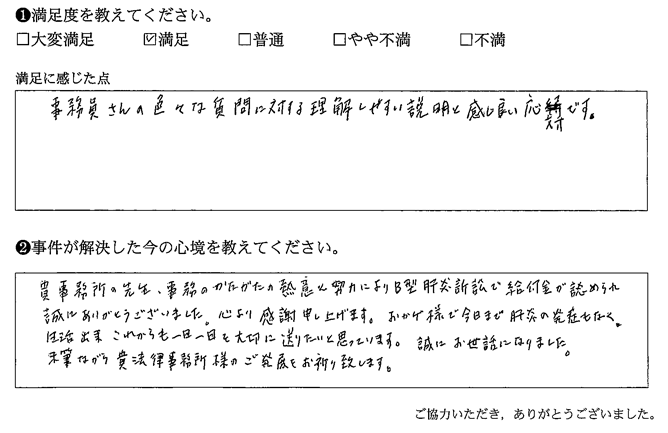 ❶満足度を教えてください。
□大変満足 ☑満足 □普通 □やや不満 □不満
満足に感じた点
事務員さんの色々な質問に対する理解しやすい説明と感じ良い応対です。
❷事件が解決した今の心境を教えてください。
貴事務所の先生、事務のかたがたの熱意と努力によりB型肝炎訴訟で給付金が認められ
誠にありがとうございました。心より感謝申し上げます。おかげ様で今日まで肝炎の発症もなく、
生活出来これからも一日一日を大切に送りたいと思っています。誠にお世話になりました。
末筆ながら貴法律事務所様のご発展をお祈り致します。
ご協力いただき，ありがとうございました。